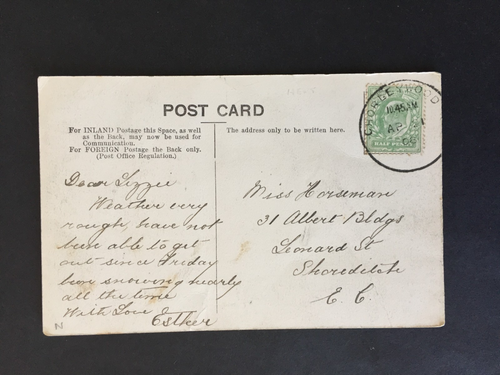 POST CARD
For INLAND Postage this Space, as well
as the Back, may now be used for
Communication.
For FOREIGN Postage the Back only.
(Post Office Regulation.)
The address only to be written here.
CHORLEYWOOD
10.45 AM
AP 1
HALF PENNY
Dear Lizzie
Weather very
rough, have not
been able to get
out since Friday
been snowing nearly
all the time
With Love
Esther
Miss Horseman
31 Albert Bldgs
Leonard St
Shoreditch
E. C.
N